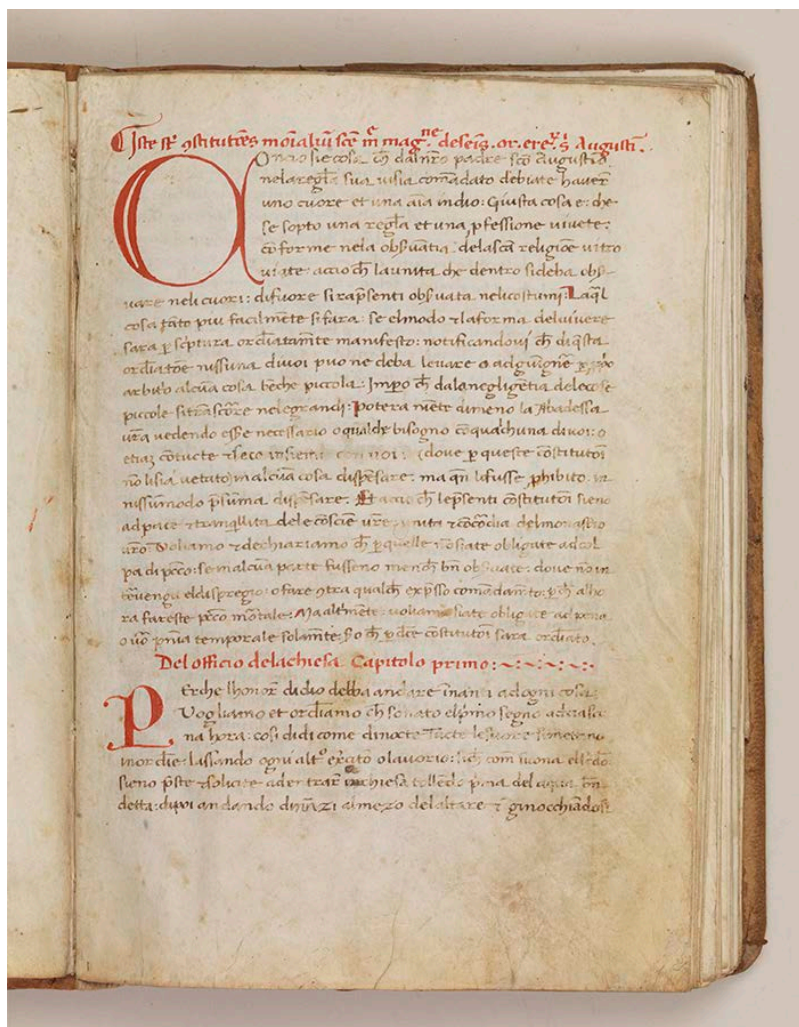 Iste st̄ ɔstitutōes moīaliū scē m̄ᵉ magⁿᵉ de seīs. or. ereᵗ. sⁱ Augustī.
Oncio sie cosa ch̄ dal nr̄o padre scō Augustīo
nela regl̄a sua vi sia comādato debiate haver̄
uno cuore et una aīa in dio: Quista cosa e: che
se sopto una regl̄a et una ꝓfessione vivete:
cōforme nela obs̄uātia: dela scā religiōe
viate: accio ch̄ la unita che dentro si deba obs̄-
vare neli cuori: di fuore si rap̄senti obs̄uata neli costumi. La q̄l
cosa tāto piu facilmēte si fara: se el modo ⁊ la forma del vivere
sara ꝑ sc̄ptura ordīatam̄te manifesto: notificandovi ch̄ di q̄sta
ordīatōe nissuna di voi puo ne deba levare o adgiūgne
arbīo alcūa cosa bēche piccola: Impo ch̄ dala negligētia dele cose
piccole si trāscōre nele grandi: Potera niēte di meno la Abadessa
vr̄a vedendo esse necessario o qualche bisogno cō qualchuna di voi: o
dove ꝑ queste cōstitutōi
nō li sia vetato) in alcūa cosa dispēsare: ma q̄n li fusse ꝓhibito: in
nissū modo p̄suma dispēsare: Et accio ch̄ le p̄senti cōstitutōi sieno
ad pace ⁊ tranq̄llita dele cōsciē vr̄e: ⁊ unita ⁊ cōcōdia del monast̄o
vr̄o: Voliamo ⁊ dechiariamo ch̄ ꝑ quelle nō siate obligate ad col
pa di pc̄co: se in alcūa parte fusseno men ch̄ bn̄ obs̄uate: dove nō in
tervenga el dispregio: o fare ɔtra qualch̄ exp̄sso comādam̄to: ꝑ ch̄ alho
ra fareste pc̄co mōtale: Ma altm̄ēte: voliamo siate obligate ad pena
o vo͞ pn̄ia temporale solam̄te: So ch̄ ꝑ dc̄e cōstitutōi sara ordīato.
Del officio dela chiesa. Capitolo primo:~:~:~:~:.
Perche lhonor̄ di dio debba andare īnanzi ad ogni cosa:
Vogliamo et ordīamo ch̄ sonato el p̄mo segno ad ciasa
na hora: cosi di di come di nocte: Tucte le suore si metteno
in ordīe: lassando ogni alt̄o ex̄cito o lavorio: sich̄ com suona
sieno p̄ste ⁊ solicite ad entrar̄ in chiesa tollēdo p̄ma del aqua bn̄-
detta: di poi andando dināzi al mezo del altare ⁊ ginocchiādosi